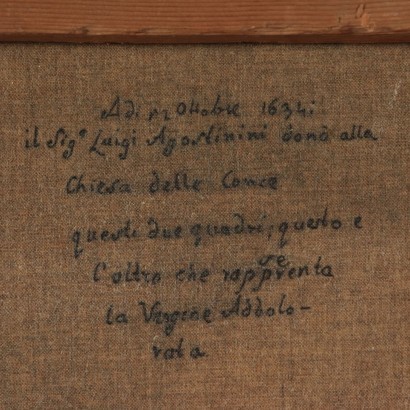 Adi 12 Ottobre 1634:
il Sigº Luigi Agostinini donò alla
Chiesa delle Conce
questi due quadri, questo e
l'altro che rappresenta
la Vergine Addolo-
rata